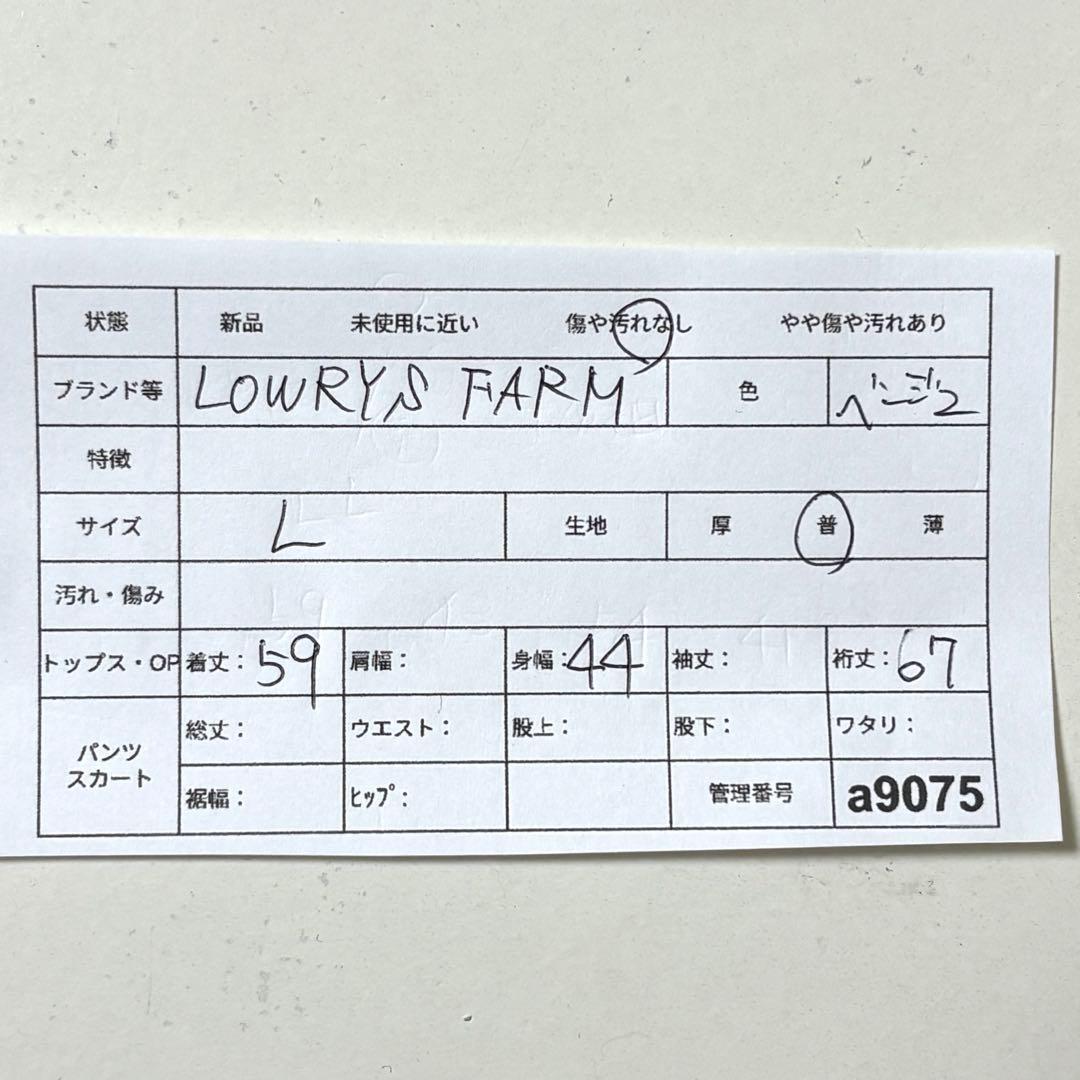 状態 新品 未使用に近い 傷や汚れなし やや傷や汚れあり
ブランド等 LOWRYS FARM 色 ベージュ
特徴
サイズ L 生地 厚 普 薄
汚れ・傷み
トップス・OP 着丈：59 肩幅： 身幅：44 袖丈： 裄丈：67
パンツ
スカート
総丈： ウエスト： 股上： 股下： ワタリ：
裾幅： ﾋｯﾌﾟ： 管理番号 a9075